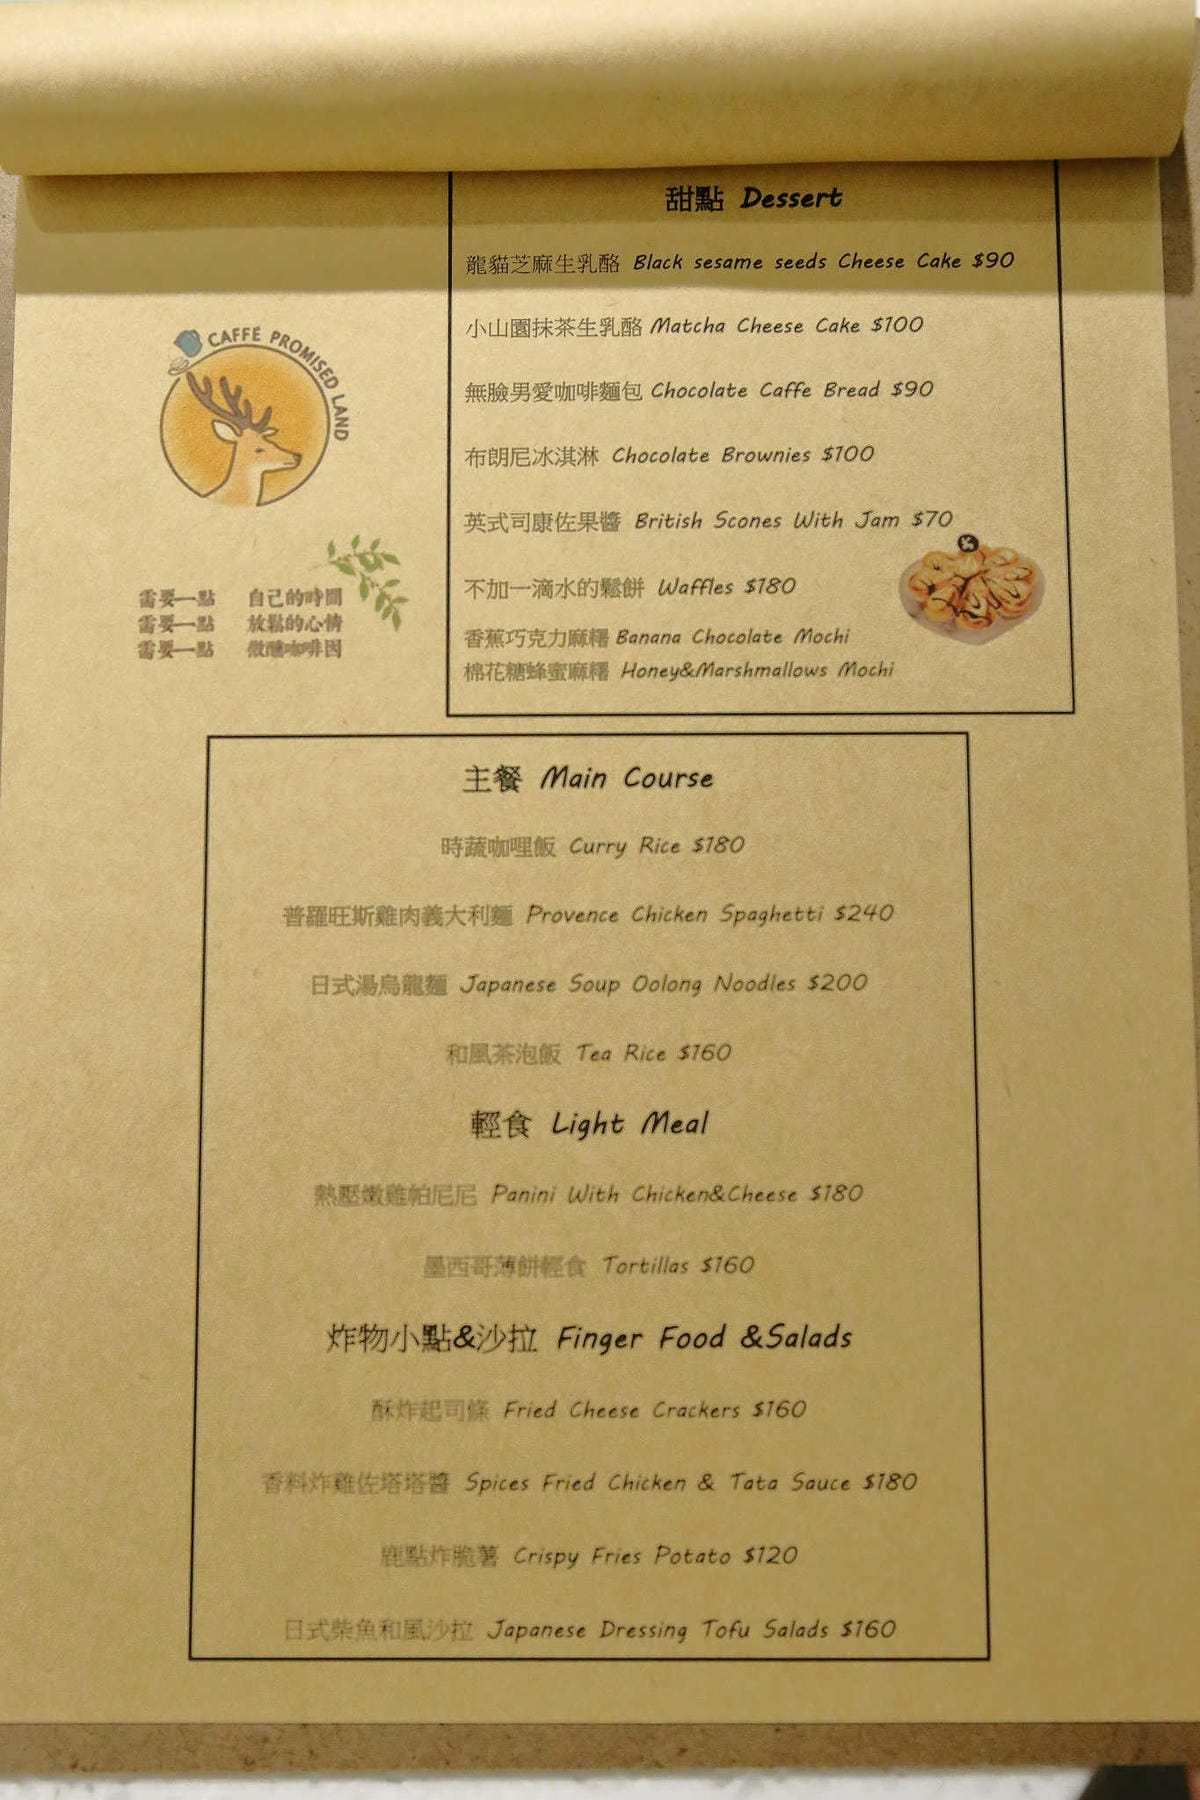 甜點 Dessert
龍貓芝麻生乳酪 Black sesame seeds Cheese Cake $90
小山園抹茶生乳酪 Matcha Cheese Cake $100
無臉男愛咖啡麵包 Chocolate Caffe Bread $90
布朗尼冰淇淋 Chocolate Brownies $100
英式司康佐果醬 British Scones With Jam $70
不加一滴水的鬆餅 Waffles $180
香蕉巧克力麻糬 Banana Chocolate Mochi
棉花糖蜂蜜麻糬 Honey&Marshmallows Mochi
CAFFÉ PROMISED LAND
需要一點 自己的時間
需要一點 放鬆的心情
需要一點 微醺咖啡因
主餐 Main Course
時蔬咖哩飯 Curry Rice $180
普羅旺斯雞肉義大利麵 Provence Chicken Spaghetti $240
日式湯烏龍麵 Japanese Soup Oolong Noodles $200
和風茶泡飯 Tea Rice $160
輕食 Light Meal
熱壓嫩雞帕尼尼 Panini With Chicken&Cheese $180
墨西哥薄餅輕食 Tortillas $160
炸物小點&沙拉 Finger Food &Salads
酥炸起司條 Fried Cheese Crackers $160
香料炸雞佐塔塔醬 Spices Fried Chicken & Tata Sauce $180
鹿點炸脆薯 Crispy Fries Potato $120
日式柴魚和風沙拉 Japanese Dressing Tofu Salads $160